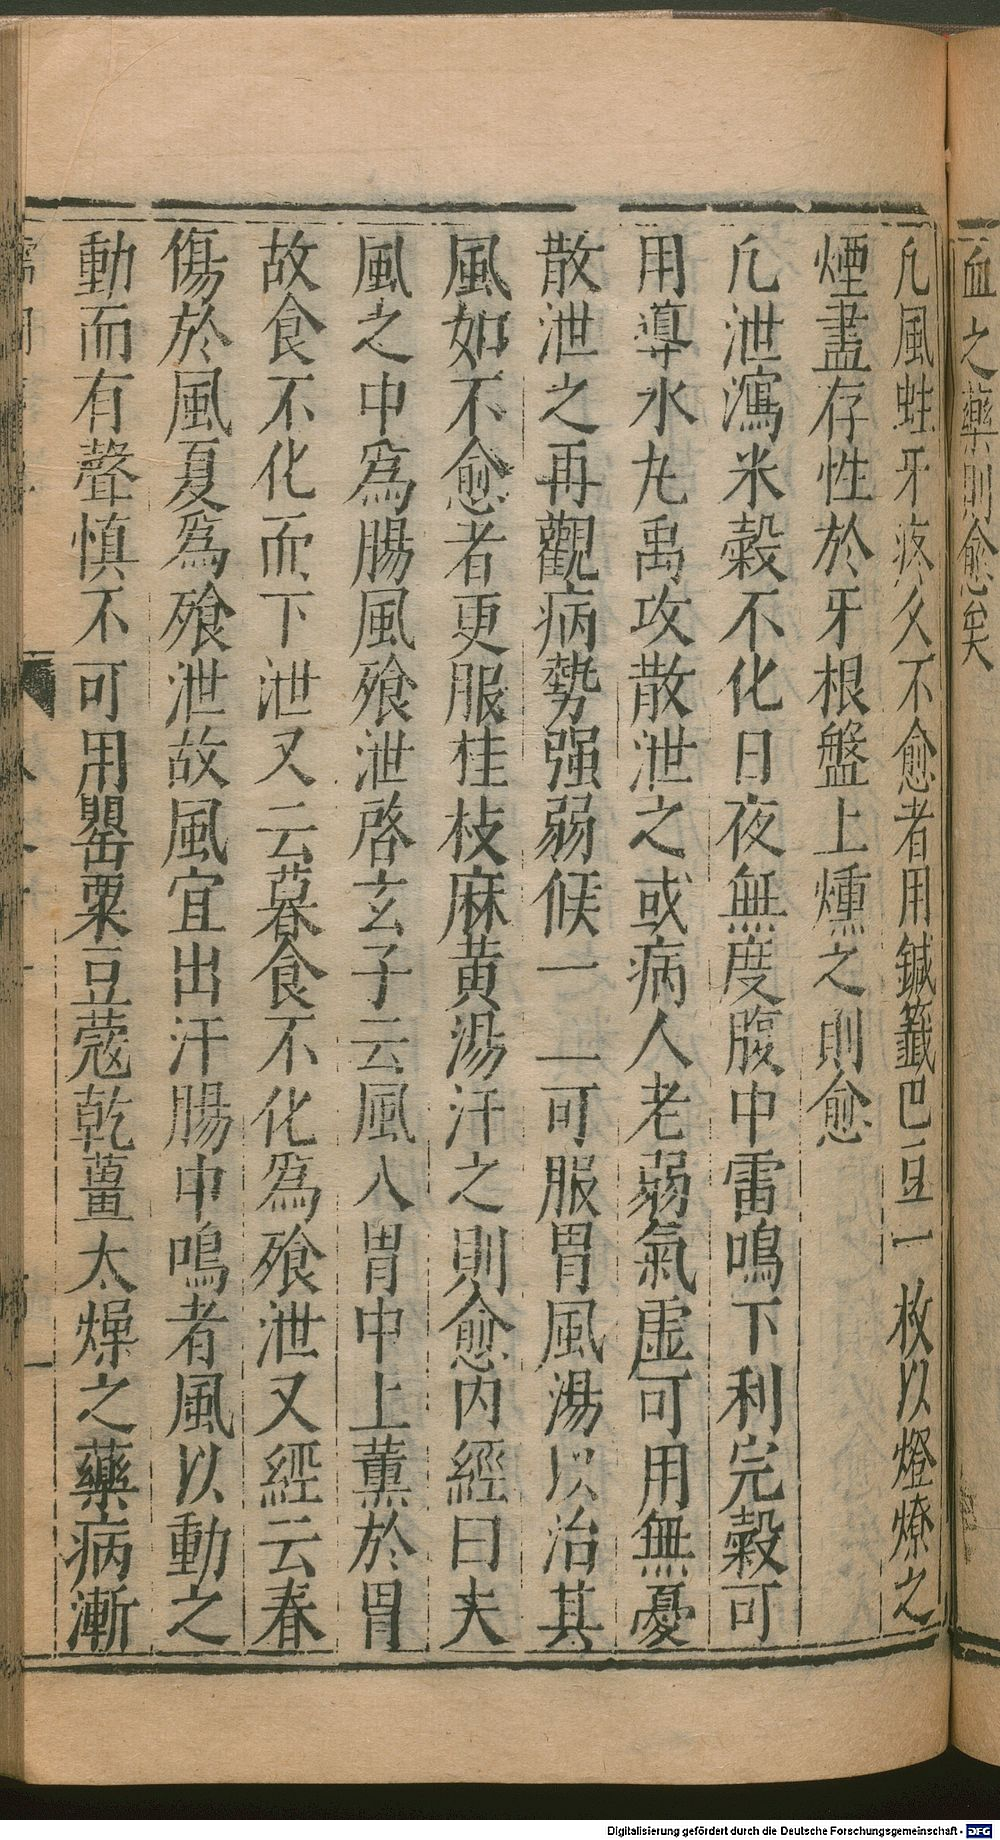 血之藥則愈矣
凢風蛀牙疼久不愈者用鍼籤巴豆一枚以燈燎之
煙盡存性於牙根盤上燻之則愈
凢泄瀉米穀不化日夜無度腹中雷鳴下利完穀可
用導水丸禹攻散泄之或病人老弱氣虛可用無憂
散泄之再觀病勢强弱候一二可服胃風湯以治其
風如不愈者更服桂枝麻黄湯汗之則愈内經曰夫
風之中為腸風飱泄啓玄子云風入胃中上薫於胃
故食不化而下泄又云暮食不化為飱泄又經云春
傷於風夏為飱泄故風宜出汗腸中鳴者風以動之
動而有聲慎不可用罌粟豆蔻乾薑太燥之藥病漸
Digitalisierung gefördert durch die Deutsche Forschungsgemeinschaft - DFG